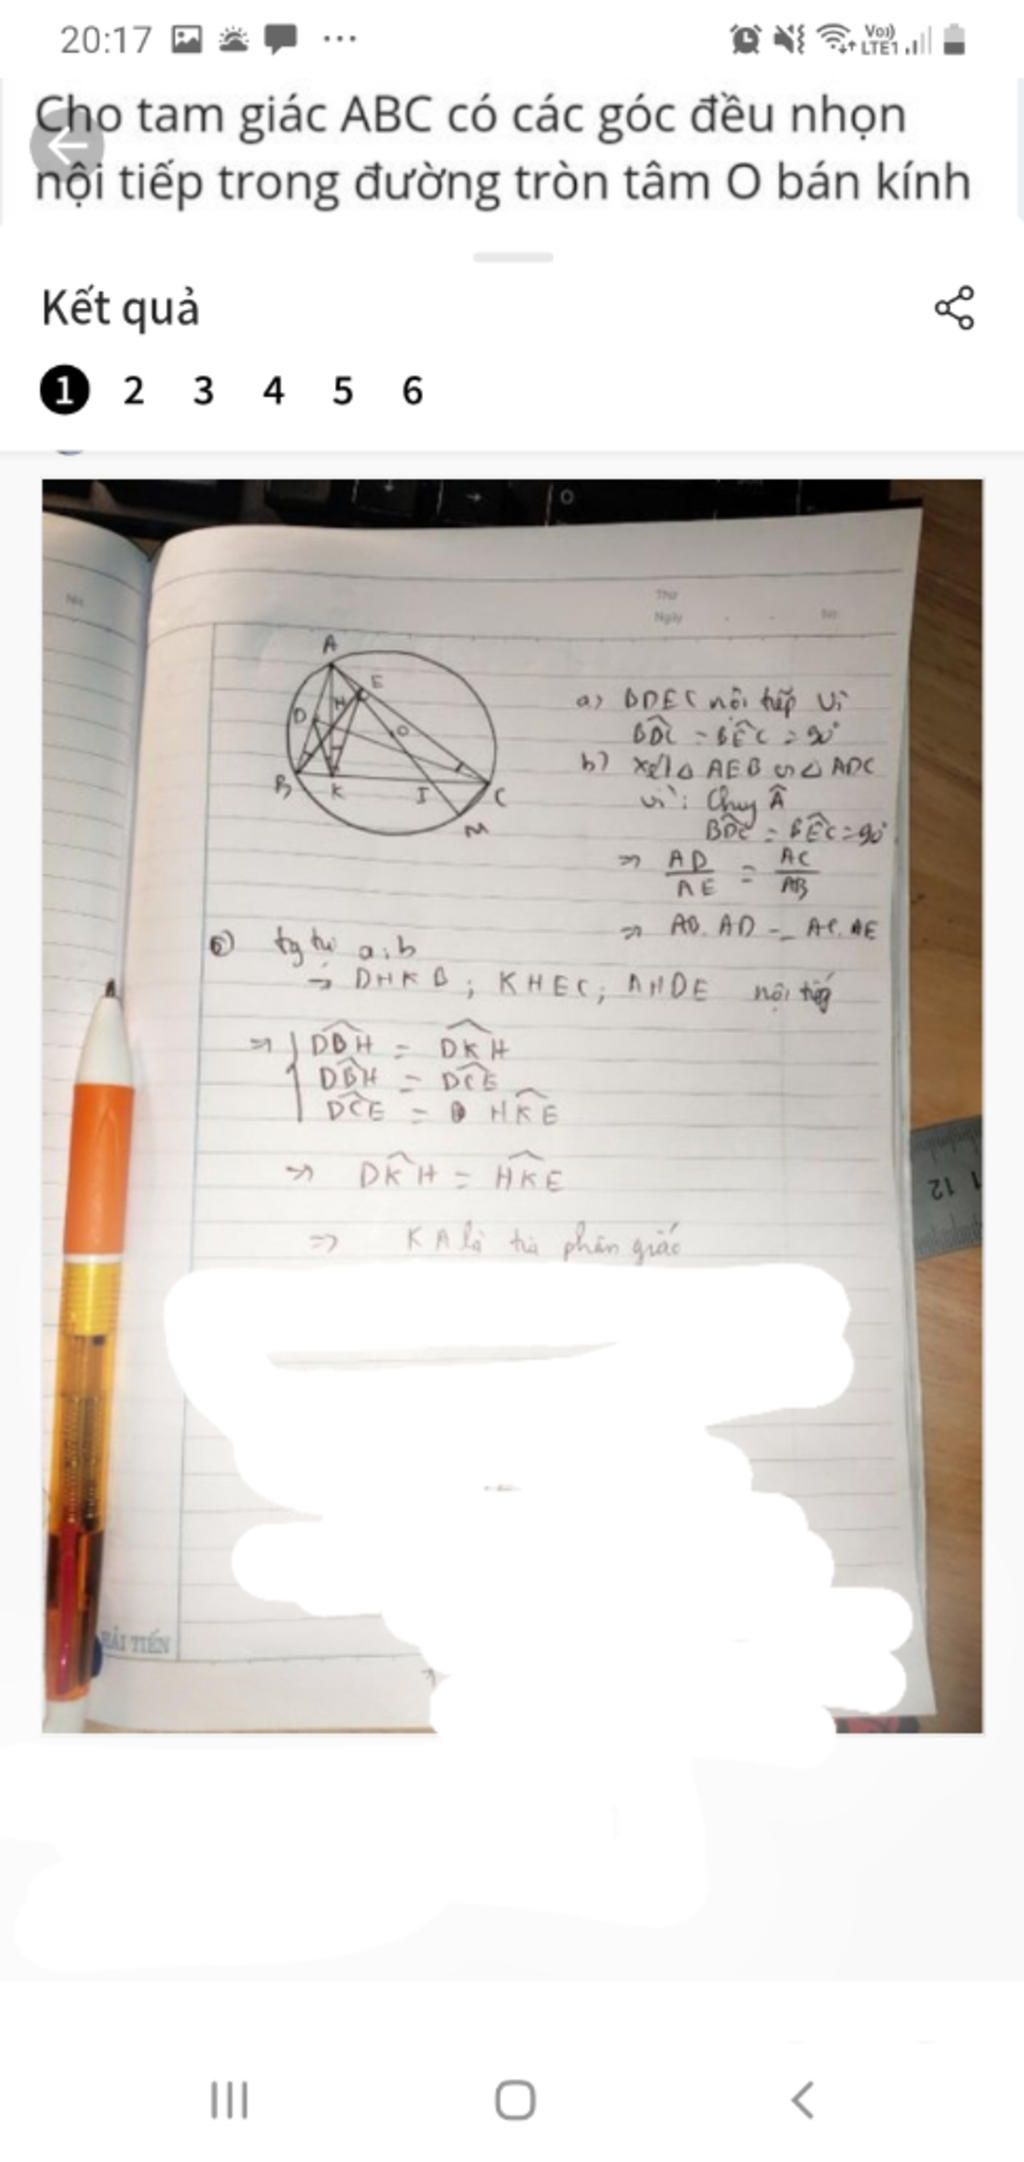 20:17
Vo))
LTE1
Cho tam giác ABC có các góc đều nhọn
nội tiếp trong đường tròn tâm O bán kính
Kết quả
1 2 3 4 5 6
Thứ
Ngày
No
A
E
H
D
O
B
K
I
C
M
a) BDEC nội tiếp vì
BDC = BEC = 90°
b) Xét △ AEB ∽ △ ADC
vì: Chung Â
BDC = BEC = 90°
=> AD/AE = AC/AB
=> AB. AD = AC. AE
c) tg tự a, b
→ DHKB ; KHEC ; AHDE nội tiếp
=> DBH = DKH
DBH = DCE
DCE = HKE
=> DKH = HKE
=> KA là tia phân giác
12
HẢI TIẾN